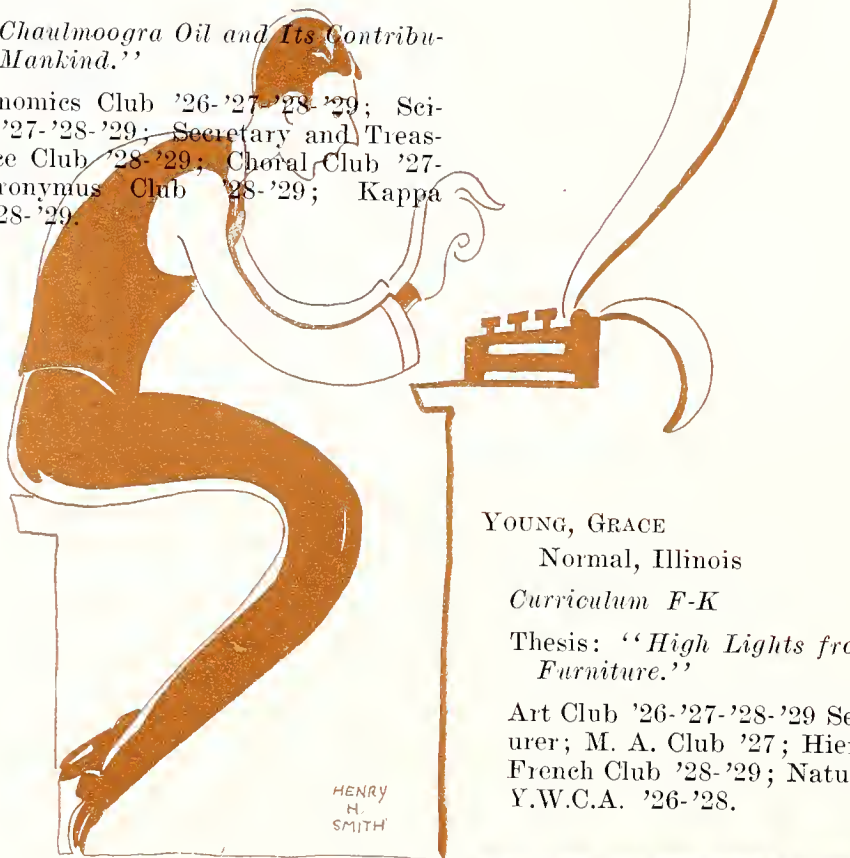 Chaulmoogra Oil and Its Contribu-
Mankind.''
nomics Club '26-'27-'28-'29; Sci-
'27-'28-'29; Secretary and Treas-
ce Club '28-'29; Choral Club '27-
ronymus Club '28-'29; Kappa
28-'29.
YOUNG, GRACE
Normal, Illinois
Curriculum F-K
Thesis: ``High Lights fro
Furniture.''
Art Club '26-'27-'28-'29 Se
urer; M. A. Club '27; Hie
French Club '28-'29; Natu
Y.W.C.A. '26-'28.
HENRY
H.
SMITH